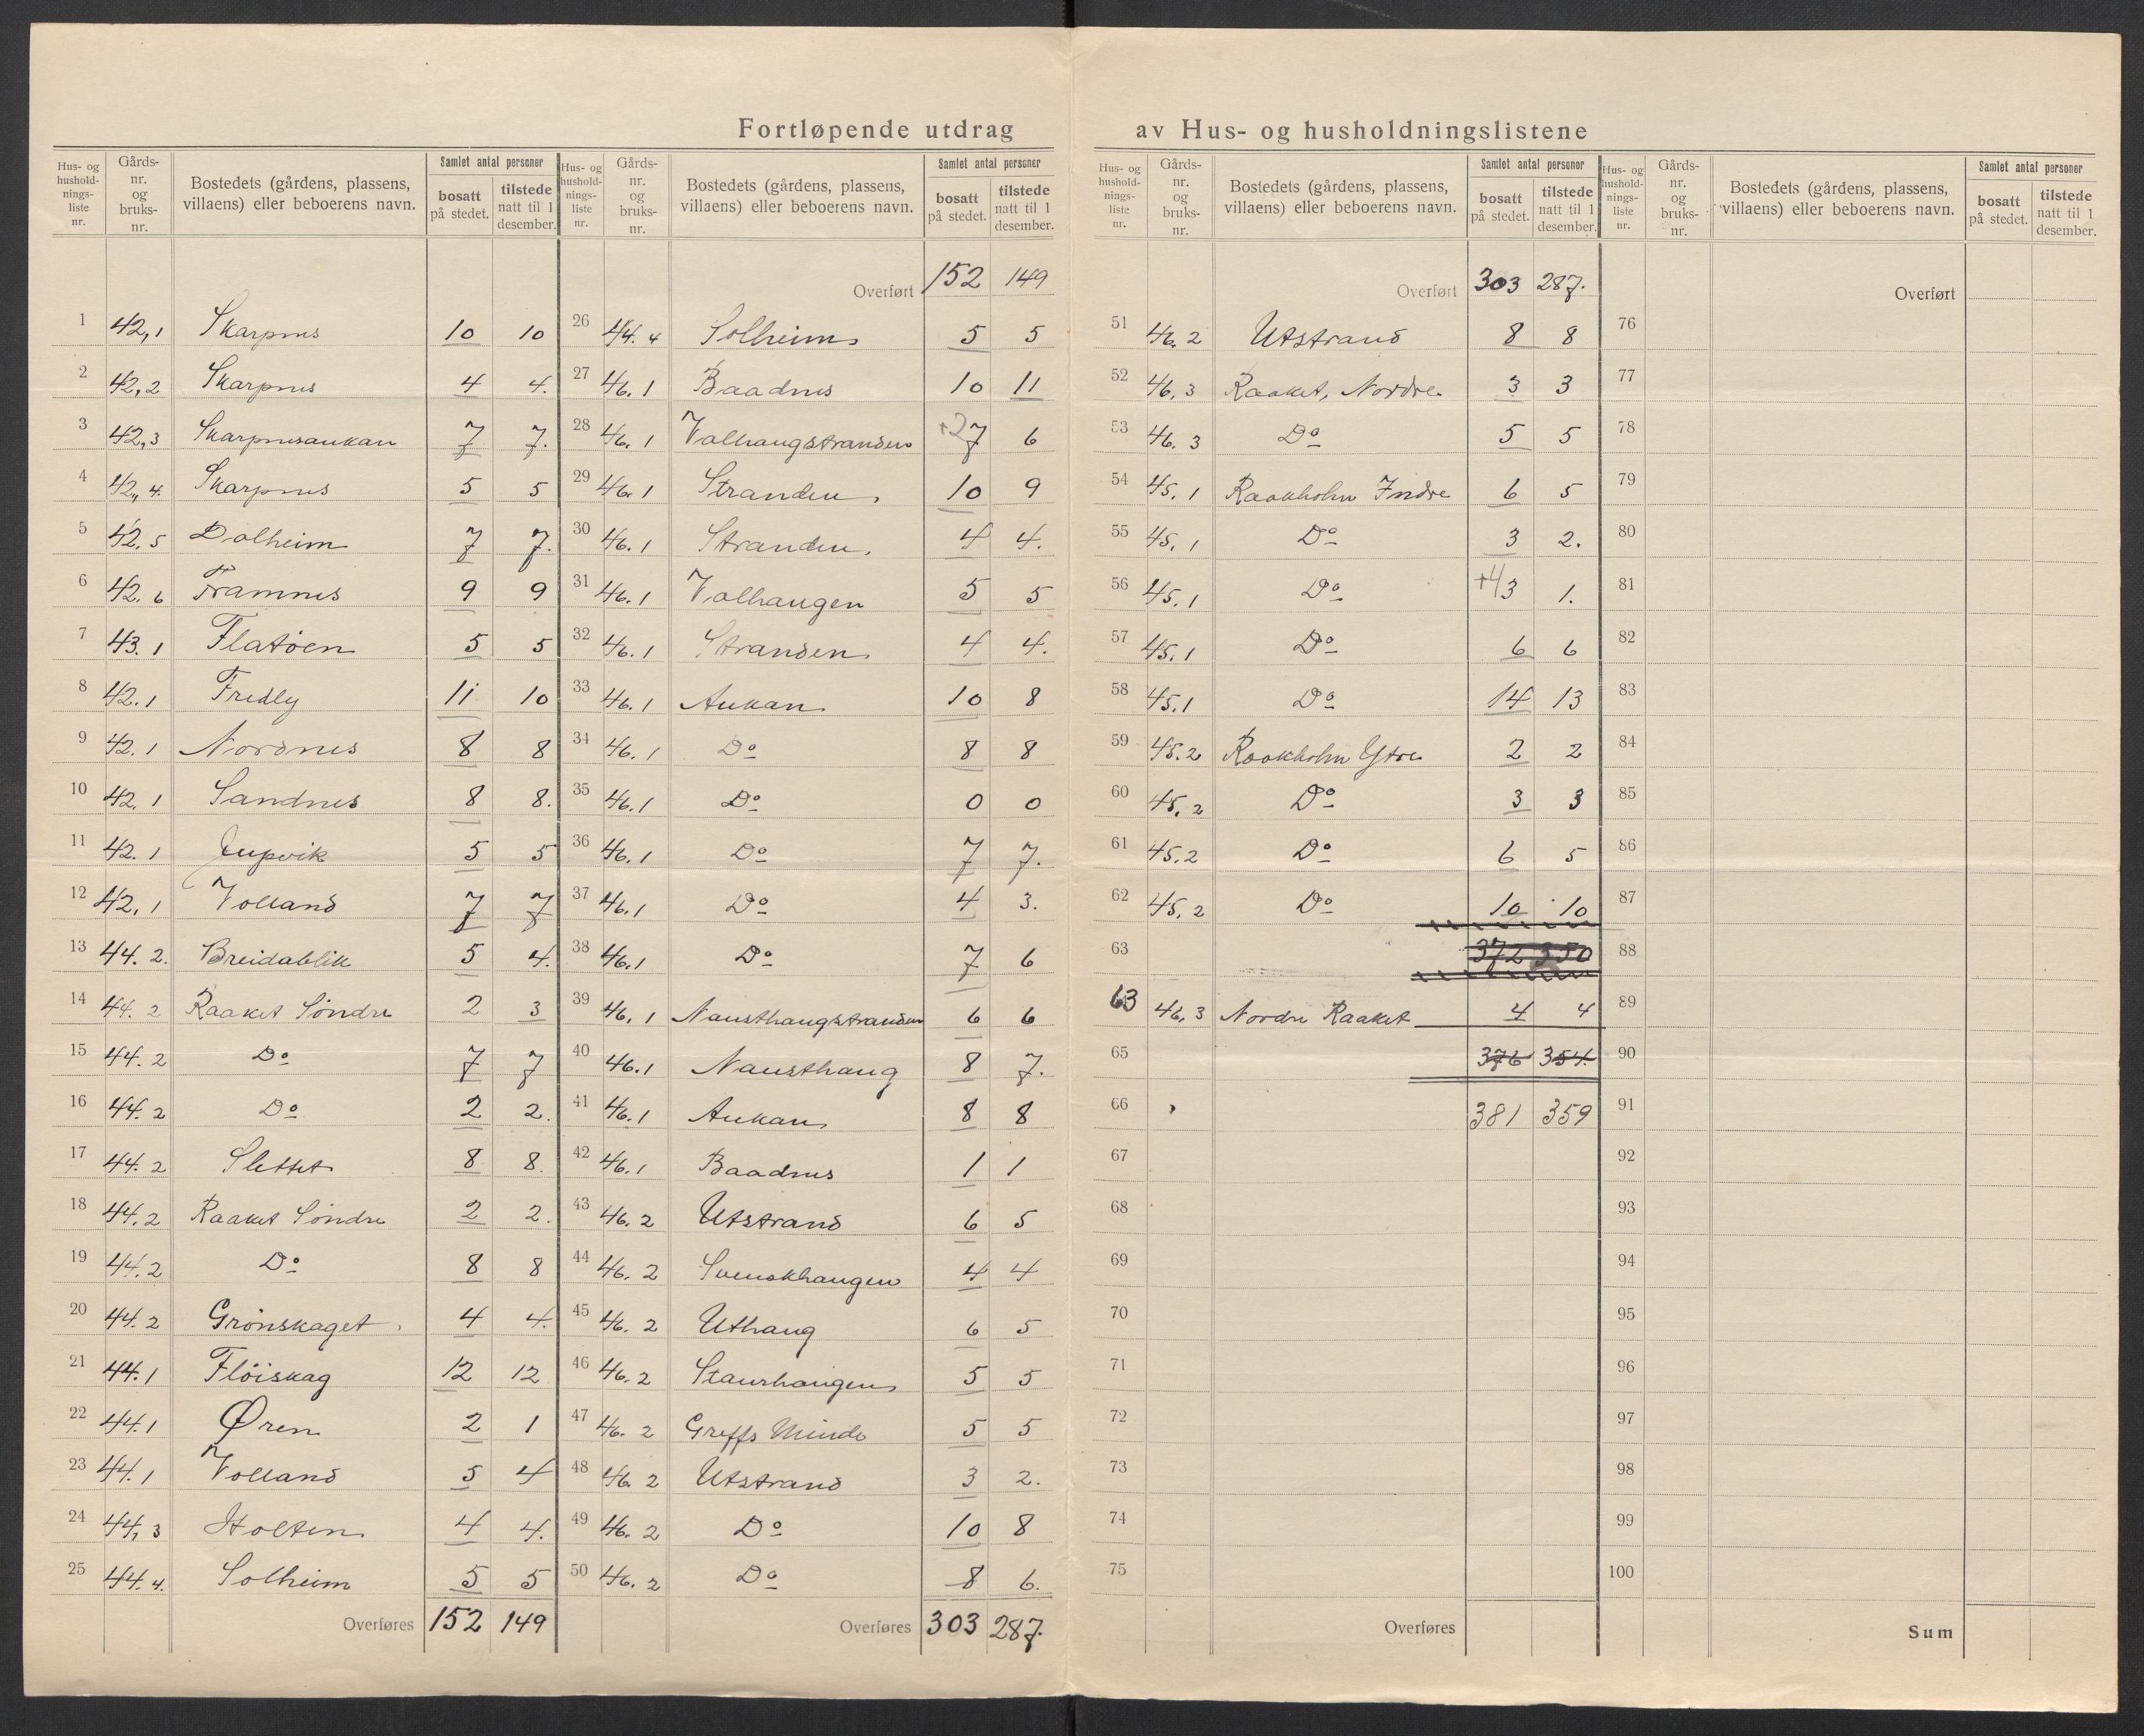 Fortløpende utdrag av Hus- og husholdningslistene
Hus- og hushold- nings- liste nr. Gårds- nr. og bruks- nr. Bostedets (gårdens, plassens, villaens) eller beboerens navn. Samlet antal personer bosatt på stedet. tilstede natt til 1 desember.
1 42,1 Skarpnes 10 10
2 42,2 Skarpnes 4 4.
3 42,3 Skarpnesaukan 7 7.
4 42,4. Skarpnes 5 5
5 42.5 Dalheim 7 7.
6 42.6 Framnes 9 9
7 43.1 Flatöen 5 5
8 42.1 Fredly 11 10
9 42.1 Nordnes 8 8
10 42.1 Sandnes 8 8.
11 42.1 Jupvik 5 5
12 42,1 Volland 7 7
13 44.2. Breidablik 5 4.
14 44.2 Raaket Söndre 2 3
15 44.2 Do 7 7
16 44.2 Do 2 2.
17 44.2 Slettet 8 8.
18 44.2 Raaket Söndre 2 2.
19 44.2 Do 8 8
20 44.2 Grönskaget 4 4.
21 44.1 Flöiskag 12 12
22 44.1 Øren 2 1
23 44.1 Volland 5 4
24 44,3 Holten 4 4.
25 44.4. Solheim 5 5
Overføres 152 149
Hus- og hushold- nings- liste nr. Gårds- nr. og bruks- nr. Bostedets (gårdens, plassens, villaens) eller beboerens navn. Samlet antal personer bosatt på stedet. tilstede natt til 1 desember.
Overført 152 149
26 44.4 Solheim 5 5
27 46.1 Baadnes 10 11
28 46.1 Valhaugstranden +2 7 6
29 46.1 Stranden 10 9
30 46.1 Stranden. 4 4.
31 46.1 Valhaugen 5 5
32 46.1 Stranden 4 4.
33 46.1 Aukan 10 8
34 46.1 Do 8 8
35 46.1 Do 0 0
36 46.1 Do 7 7.
37 46.1 Do 4 3.
38 46.1 Do 7 6
39 46.1 Nausthaugstranden 6 6
40 46.1 Nausthaug 8 7.
41 46.1 Aukan 8 8
42 46.1 Baadnes 1 1
43 46.2 Utstrand 6 5
44 46.2 Svenskhaugen 4 4
45 46.2 Uthaug 6 5
46 46.2 Staurhaugen 5 5
47 46.2 Greffs Minde 5 5
48 46.2 Utstrand 3 2.
49 46.2 Do 10 8
50 46.2 Do 8 6.
Overføres 303 287.
Hus- og hushold- nings- liste nr. Gårds- nr. og bruks- nr. Bostedets (gårdens, plassens, villaens) eller beboerens navn. Samlet antal personer bosatt på stedet. tilstede natt til 1 desember.
Overført 303 287.
51 46.2 Utstrand 8 8
52 46.3 Raaket, Nordre 3 3
53 46.3 Do 5 5
54 45.1 Raakholm Indre 6 5
55 45.1 Do 3 2.
56 45.1 Do +4 3 1.
57 45.1 Do 6 6
58 45.1 Do 14 13
59 45.2 Raakholm Ytre 2 2
60 45.2 Do 3 3
61 45.2 Do 6 5
62 45.2 Do 10 10
63 372 350
63 46.3 Nordre Raaket 4 4
65 376 354.
66 381 359
67
68
69
70
71
72
73
74
75
Overføres
Hus- og hushold- nings- liste nr. Gårds- nr. og bruks- nr. Bostedets (gårdens, plassens, villaens) eller beboerens navn. Samlet antal personer bosatt på stedet. tilstede natt til 1 desember.
Overført
76
77
78
79
80
81
82
83
84
85
86
87
88
89
90
91
92
93
94
95
96
97
98
99
100
Sum